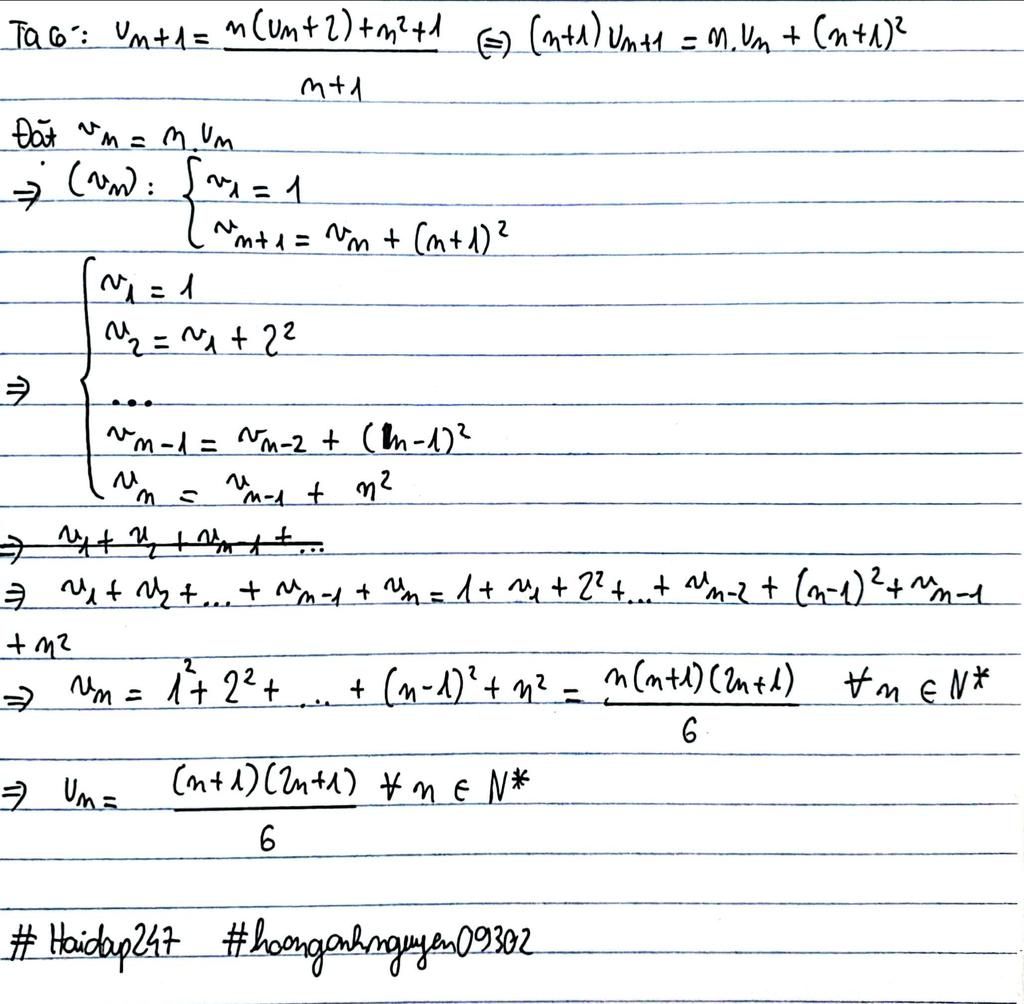 Ta có: U_{n+1} = \frac{n(U_n+2)+n²+1}{n+1} ⇔ (n+1)U_{n+1} = n.U_n + (n+1)²
Đặt v_n = n.U_n
⇒ (v_n): { v_1 = 1
v_{n+1} = v_n + (n+1)²
⇒ { v_1 = 1
v_2 = v_1 + 2²
...
v_{n-1} = v_{n-2} + (n-1)²
v_n = v_{n-1} + n²
⇒ v_1 + v_2 + v_{n-1} + ...
⇒ v_1 + v_2 + ... + v_{n-1} + v_n = 1 + v_1 + 2² + ... + v_{n-2} + (n-1)² + v_{n-1}
+ n²
⇒ v_n = 1² + 2² + ... + (n-1)² + n² = \frac{n(n+1)(2n+1)}{6} ∀ n ∈ N*
⇒ U_n = \frac{(n+1)(2n+1)}{6} ∀ n ∈ N*
# Hoidap247 #hoanganhnguyen09302